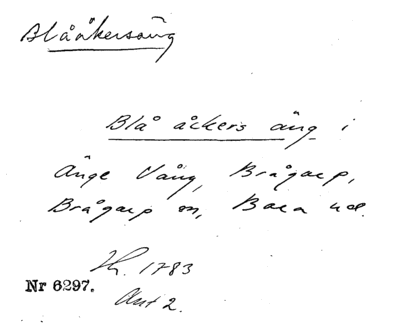 Blååkersäng
Blå åckers äng i
Änge Vång, Brågarp,
Brågarp sn, Bara hd.
1783
Nr 6297.
Akt 2.